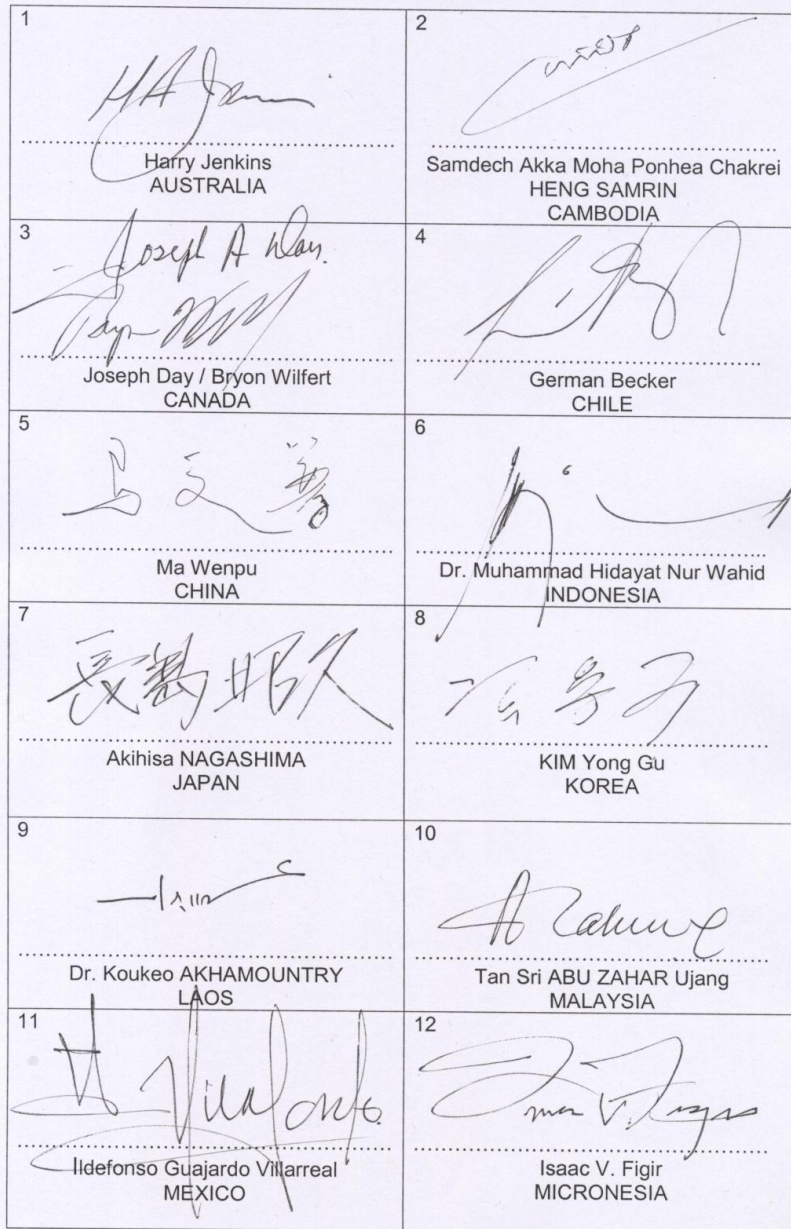 1
H A Jen
Harry Jenkins
AUSTRALIA
2
Samdech Akka Moha Ponhea Chakrei
HENG SAMRIN
CAMBODIA
3
Joseph A Day.
Joseph Day / Bryon Wilfert
CANADA
4
German Becker
CHILE
5
马文普
Ma Wenpu
CHINA
6
Dr. Muhammad Hidayat Nur Wahid
INDONESIA
7
長島昭久
Akihisa NAGASHIMA
JAPAN
8
KIM Yong Gu
KOREA
9
Dr. Koukeo AKHAMOUNTRY
LAOS
10
Tan Sri ABU ZAHAR Ujang
MALAYSIA
11
Ildefonso Guajardo Villarreal
MEXICO
12
Isaac V. Figir
MICRONESIA